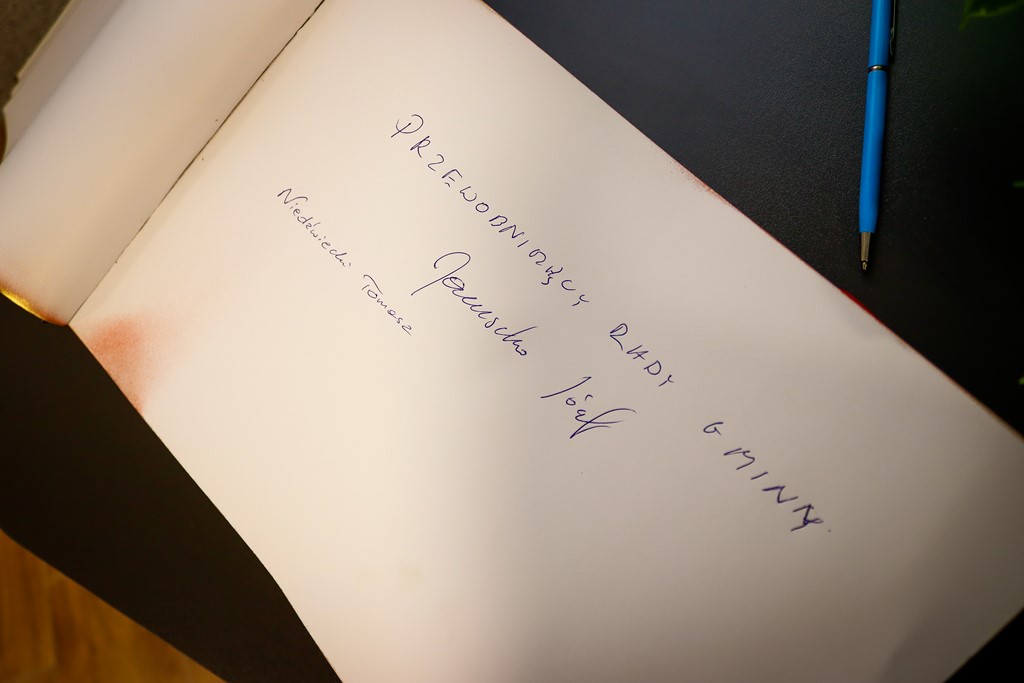 PRZEWODNICZĄCY RADY GMINY
Józef
Niedźwiecki Tomasz